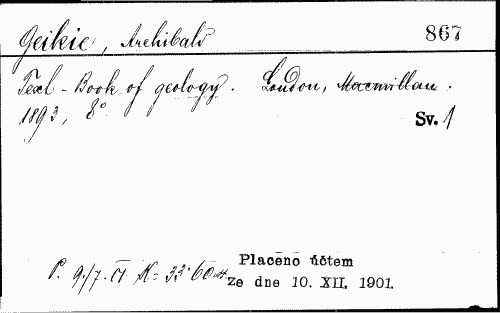 Geikie, Archibald 867
Text-Book of geology. London, Macmillan.
1893, 8°. Sv. 1
P. 9./7. 01 K = 33·60
Placeno účtem
Ze dne 10. XII. 1901.